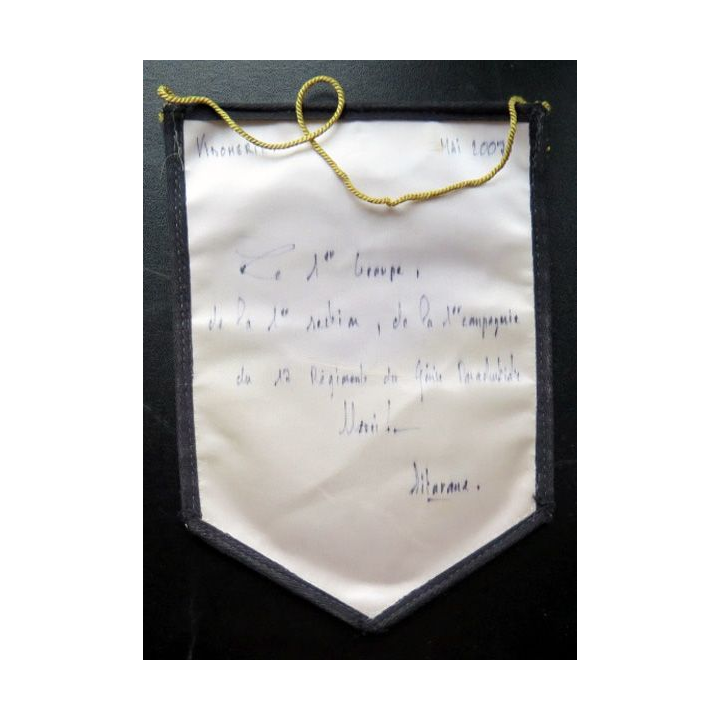 MAI 2007
Le 1er Groupe,
de la 1er section, de la 1er compagnie
du 17 Régiment du Génie Parachutiste
Merci